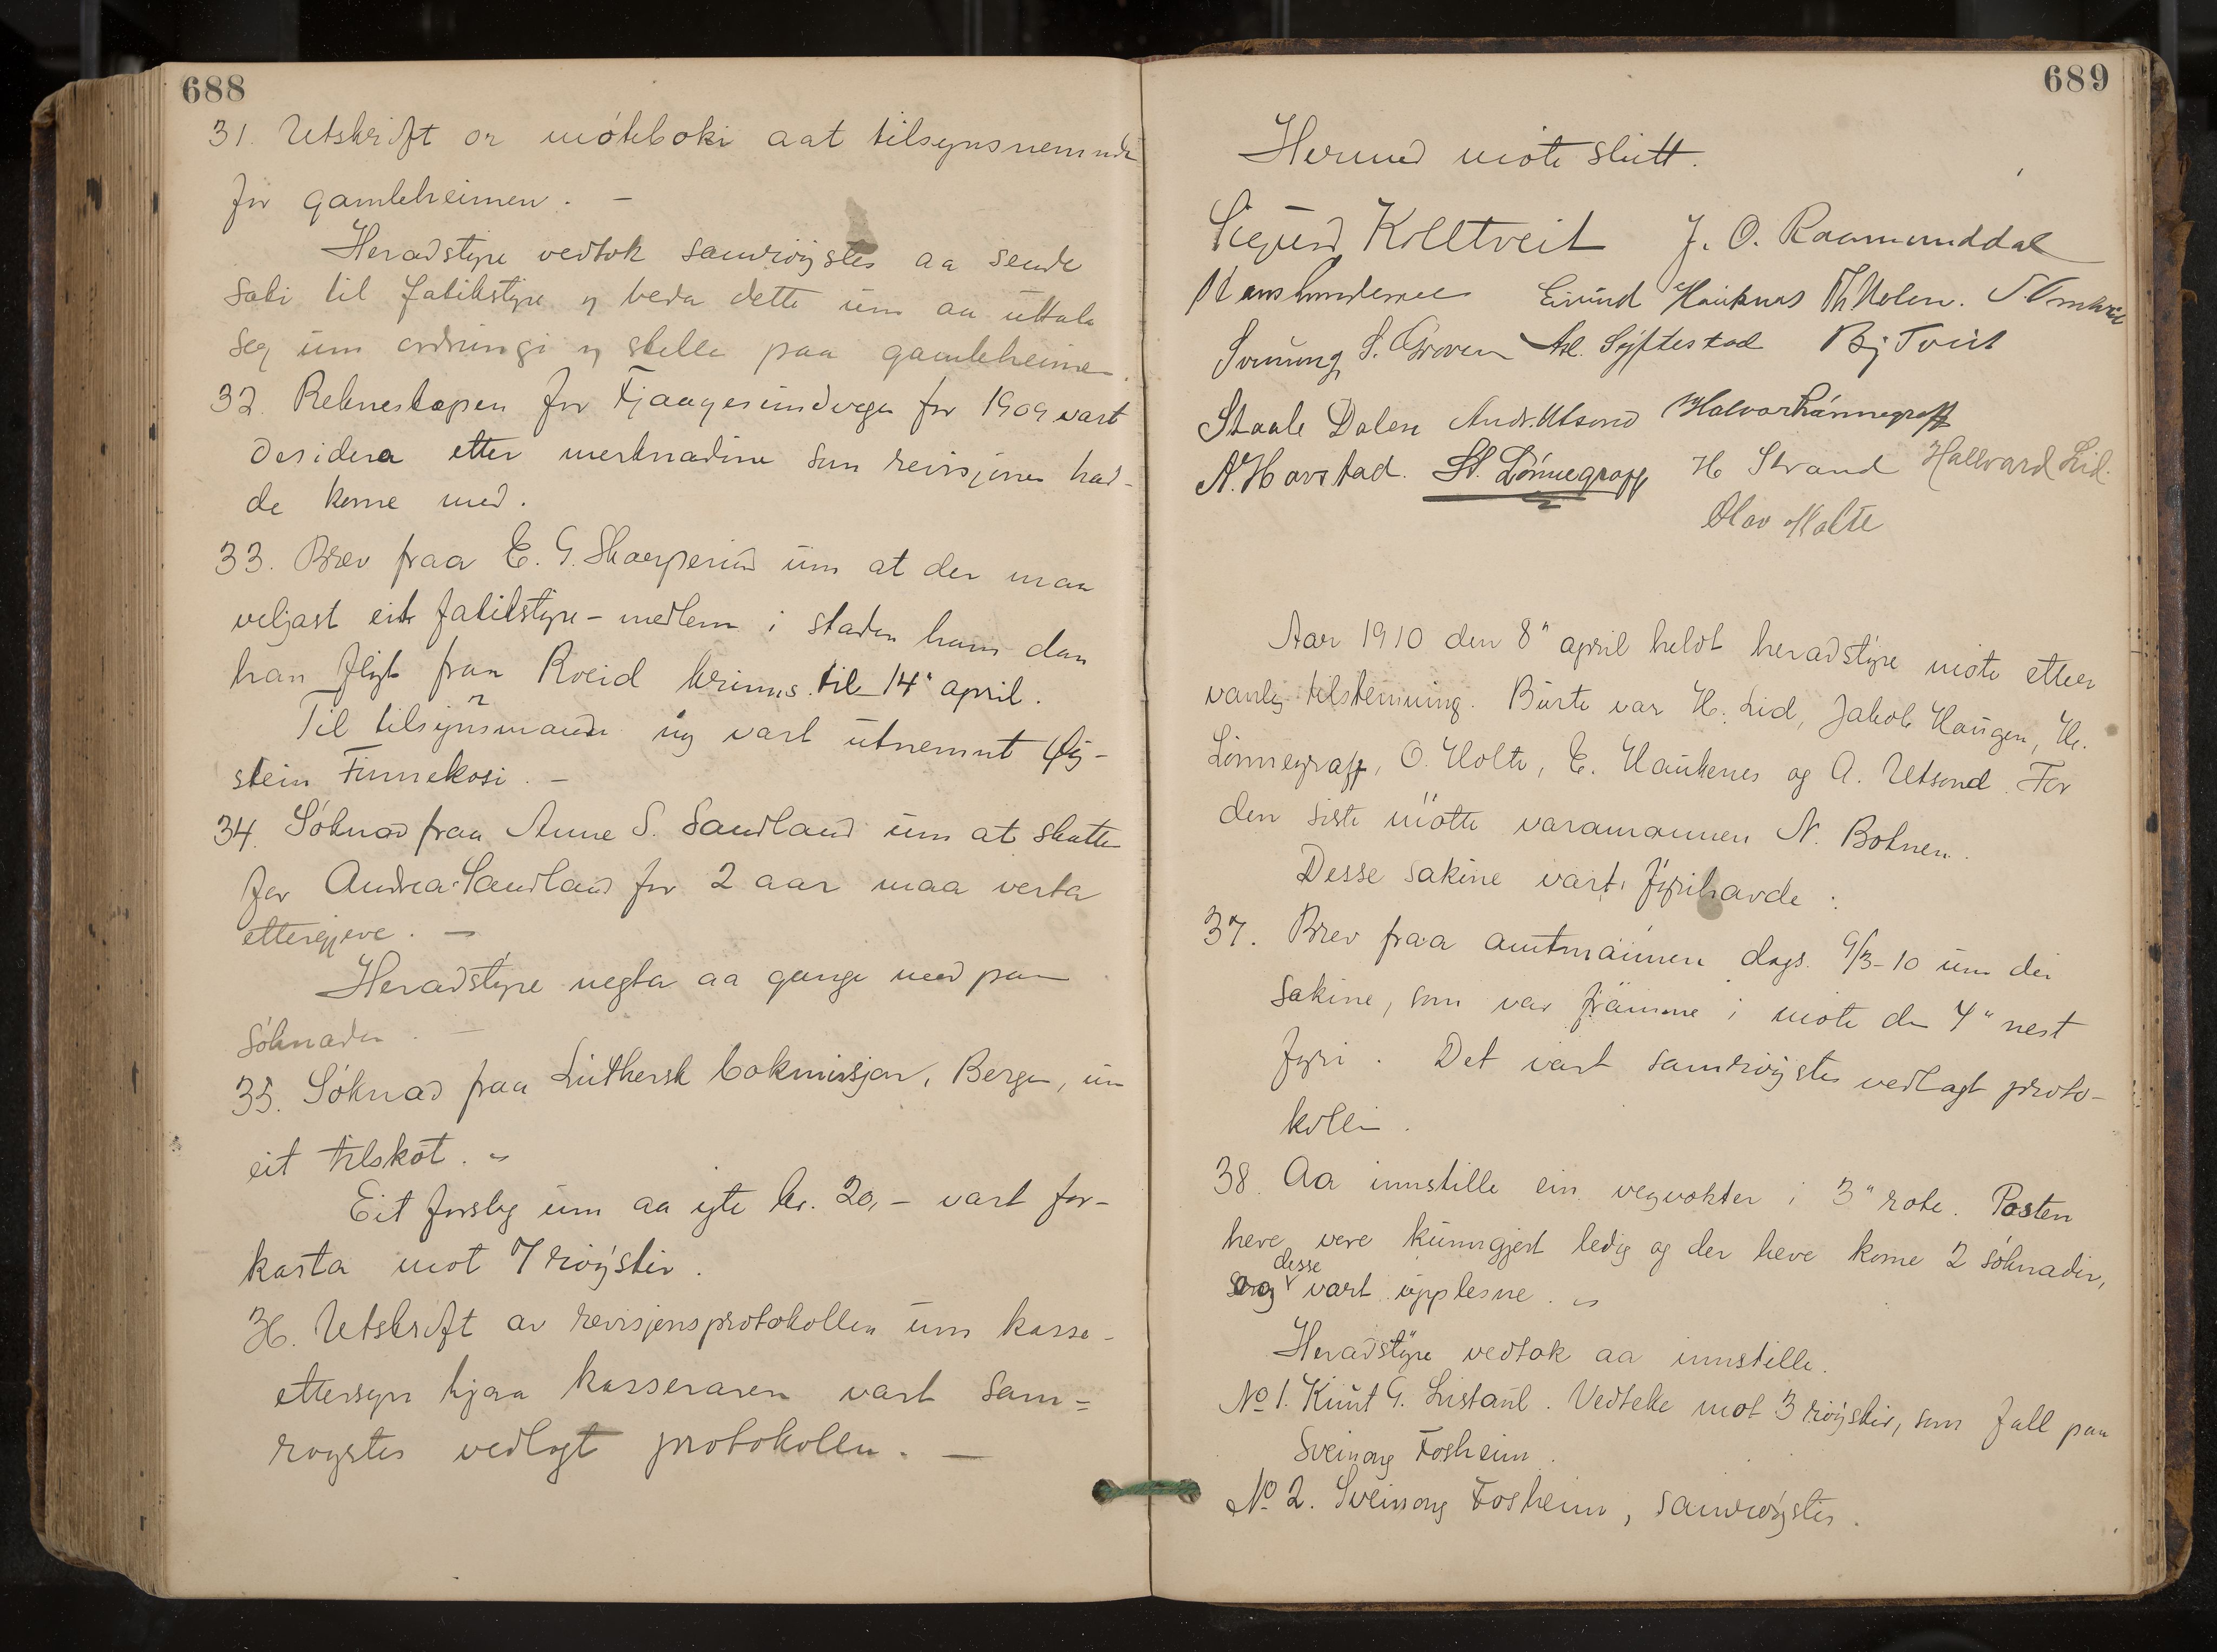 688
31. Utskrift or móteboki aat tilsynsnemndi
for gamleheimen. -
Heradstyre vedtok samróystes aa sende
saki til fatikstyre og beda dette um aa uttala
seg um ordningi og stelle paa gamleheimen.
32. Rekneskapen for Fjaagesundvegen for 1909 vart
desidera etter merknadine som revisjonen had-
de kome med.
33. Brev fraa E. G. Skarperud um at der maa
veljast eit fatikstyre-medlem i staden hans daa
han flyt fraa Roeid krinns til 14" april.
Til tilsynsmann ug vart utnemnt Øy-
stein Finnekosi. -
34. Sóknad fraa Anne S. Sandland um at skatten
for Andrea Sandland for 2 aar maa verta
ettergjeve. -
Heradstyre negta aa gange med paa
sóknaden. -
35. Sóknad fraa Luthersk bokmisjon, Bergen, um
eit tilskot. -
Eit forslag um aa yte kr. 20,- vart for-
kasta mot 7 róyster.
36. Utskrift av revisjonsprotokollen um kasse-
ettersyn hjaa kasseraren vart sam=
roystes vedlagt protokollen. -
689
Hermed móte slutt.
Sigurd Kolltveit J. O. Raamunddal
Eivind Hauknes Th Holen.
Sveinung S. Groven Asl. Syftestad Bj Tveit
Staale Dalen Andr. Utsond Halvor Lónnegraff
A. Harstad. St. Lónnegraff H Strand Hallvard Lid.
Olav Holte
Aar 1910 den 8" april heldt heradstyre móte etter
vanleg tilstemning. Burte var H. Lid, Jakob Haugen, H.
Lónnegraff, O. Holte, E. Haukenes og A. Utsond. For
den siste mótte varamannen N. Boknen.
Desse sakine vart fyrihavde:
37. Brev fraa amtmannen dags. 9/3-10 um dei
sakine, som var framme i móte den 4" nest
fyri. Det vart samróystes vedlagt proto-
kollen.
38. Aa innstille ein vegvokter i 3" rote. Posten
heve vere kunngjort ledig og der heve kome 2 sóknader,
og desse vart upplesne. -
Heradstyre vedtok aa innstille.
No 1. Knut G. Listaul. Vedteke mot 3 róyster, som fall paa
Sveinong Fosheim.
No 2. Sveinong Fosheim, samróystes.